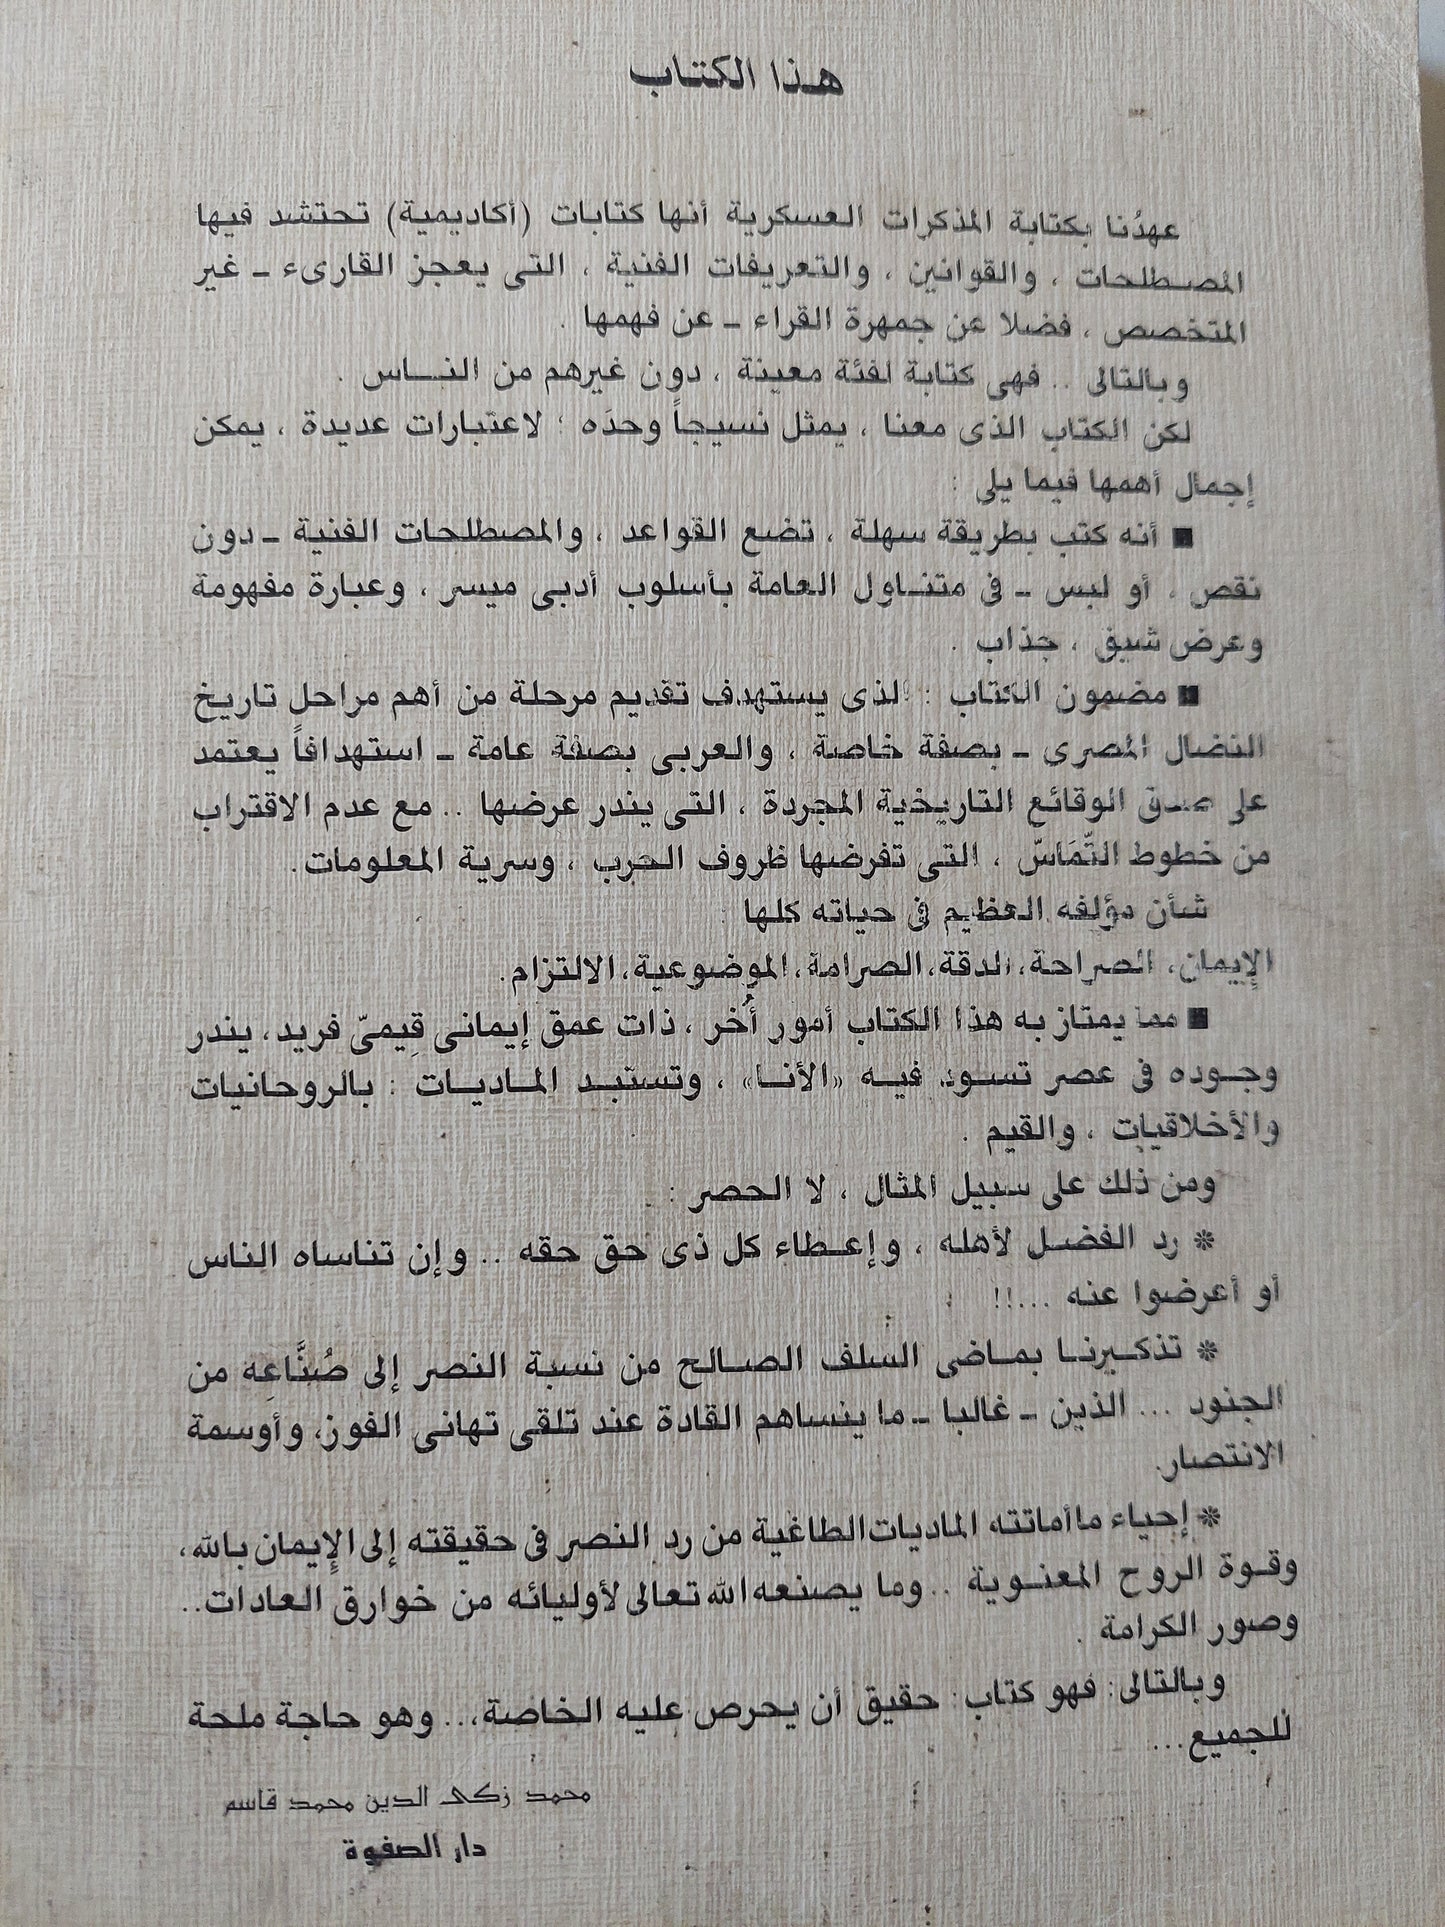 هذا الكتاب
عهدُنا بكتابة المذكرات العسكرية أنها كتابات (أكاديمية) تحتشد فيها
المصطلحات ، والقوانين ، والتعريفات الفنية ، التى يعجز القارىء ـ غير
المتخصص ، فضلا عن جمهرة القراء ـ عن فهمها .
وبالتالى .. فهى كتابة لفئة معينة ، دون غيرهم من النـاس .
لكن الكتاب الذى معنا ، يمثل نسيجاً وحدَه ؛ لاعتبارات عديدة ، يمكن
إجمال أهمها فيما يلى :
■ أنه كتب بطريقة سهلة ، تضع القواعد ، والمصطلحات الفنية ـ دون
نقص ، أو لبس ـ فى متنـاول العامة بأسلوب أدبى ميسر ، وعبارة مفهومة
وعرض شيق ، جذاب .
■ مضمون الكتاب : الذى يستهدف تقديم مرحلة من أهم مراحل تاريخ
النضال المصرى ـ بصفة خاصة ، والعربى بصفة عامة ـ استهدافاً يعتمد
على صدق الوقائع التاريخية المجردة ، التى يندر عرضها .. مع عدم الاقتراب
من خطوط التّمَاسّ ، التى تفرضها ظروف الحرب ، وسرية المعلومات.
شأن مؤلفه العظيم فى حياته كلها :
الإيمان، الصراحة، الدقة، الصرامة، الموضوعية، الالتزام.
■ مما يمتاز به هذا الكتاب أمور أُخر ، ذات عمق إيمانى قِيمىّ فريد، يندر
وجـوده فى عصر تسود فيـه «الأنـا» ، وتستبـد المـاديـات : بالروحانيات
والأخلاقيات ، والقيم .
ومن ذلك على سبيل المثال ، لا الحصر :
* رد الفضـل لأهله ، وإعـطاء كل ذى حق حقه .. وإن تناساه الناس
أو أعرضوا عنه ...!!
* تذكـيرنـا بمـاضى السلف الصـالح من نسبة النصر إلى صُنَّاعِه من
الجنود ... الذين ـ غالبا ـ ما ينساهم القادة عند تلقى تهانى الفوز، وأوسمة
الانتصار.
* إحياء ما أماتته الماديات الطاغية من رد النصر فى حقيقته إلى الإيمان بالله،
وقـوة الروح المعنـوية .. وما يصنعه الله تعالى لأوليائه من خوارق العادات..
وصور الكرامة .
وبالتالى: فهو كتاب: حقيق أن يحرص عليه الخاصة،.. وهو حاجة ملحة
للجميع...
محمد زكى الدين محمد قاسم
دار الصفوة